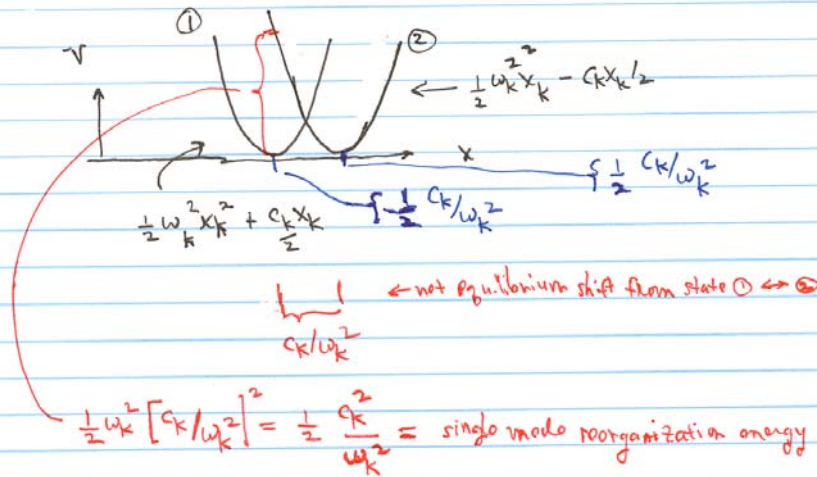 ①
②
V
← 1/2 ω_k^2 x_k^2 - C_k x_k/2
x
1/2 C_k/ω_k^2
1/2 ω_k^2 x_k^2 + C_k x_k/2
-1/2 C_k/ω_k^2
← net equilibrium shift from state ① ↔ ②
C_k/ω_k^2
1/2 ω_k^2 [C_k/ω_k^2]^2 = 1/2 C_k^2/ω_k^2 = single mode reorganization energy